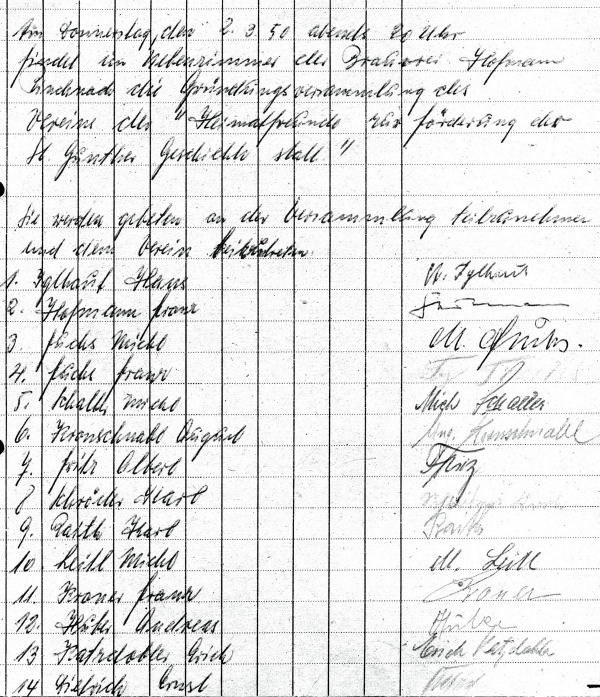 Am Donnerstag, den 2. 3. 50 abends 20 Uhr
findet im Nebenzimmer der Brauerei Hofmann
Lindnach die Gründungsversammlung des
Vereins der "Heimatfreunde zur Förderung der
St. Günther Geschichte statt"
Sie werden gebeten an der Versammlung teilzunehmen
und dem Verein beizutreten.
1. Iglhaut Hans H. Iglhaut
2. Hofmann Franz
3. Fuchs Michl M. Fuchs.
4. Fuchs Franz
5. Schaller Michl Mich Schaller
6. Kronschnabl August Aug. Kronschnabl
7. Fritz Albert Fritz
8 Schröder Karl
9. Raith Karl Raith
10. Leitl Michl M. Leitl
11 Kroner Franz Kroner
12. Huber Andreas Huber
13 Patzdobler Erich Erich
14 Dietrich Ernst